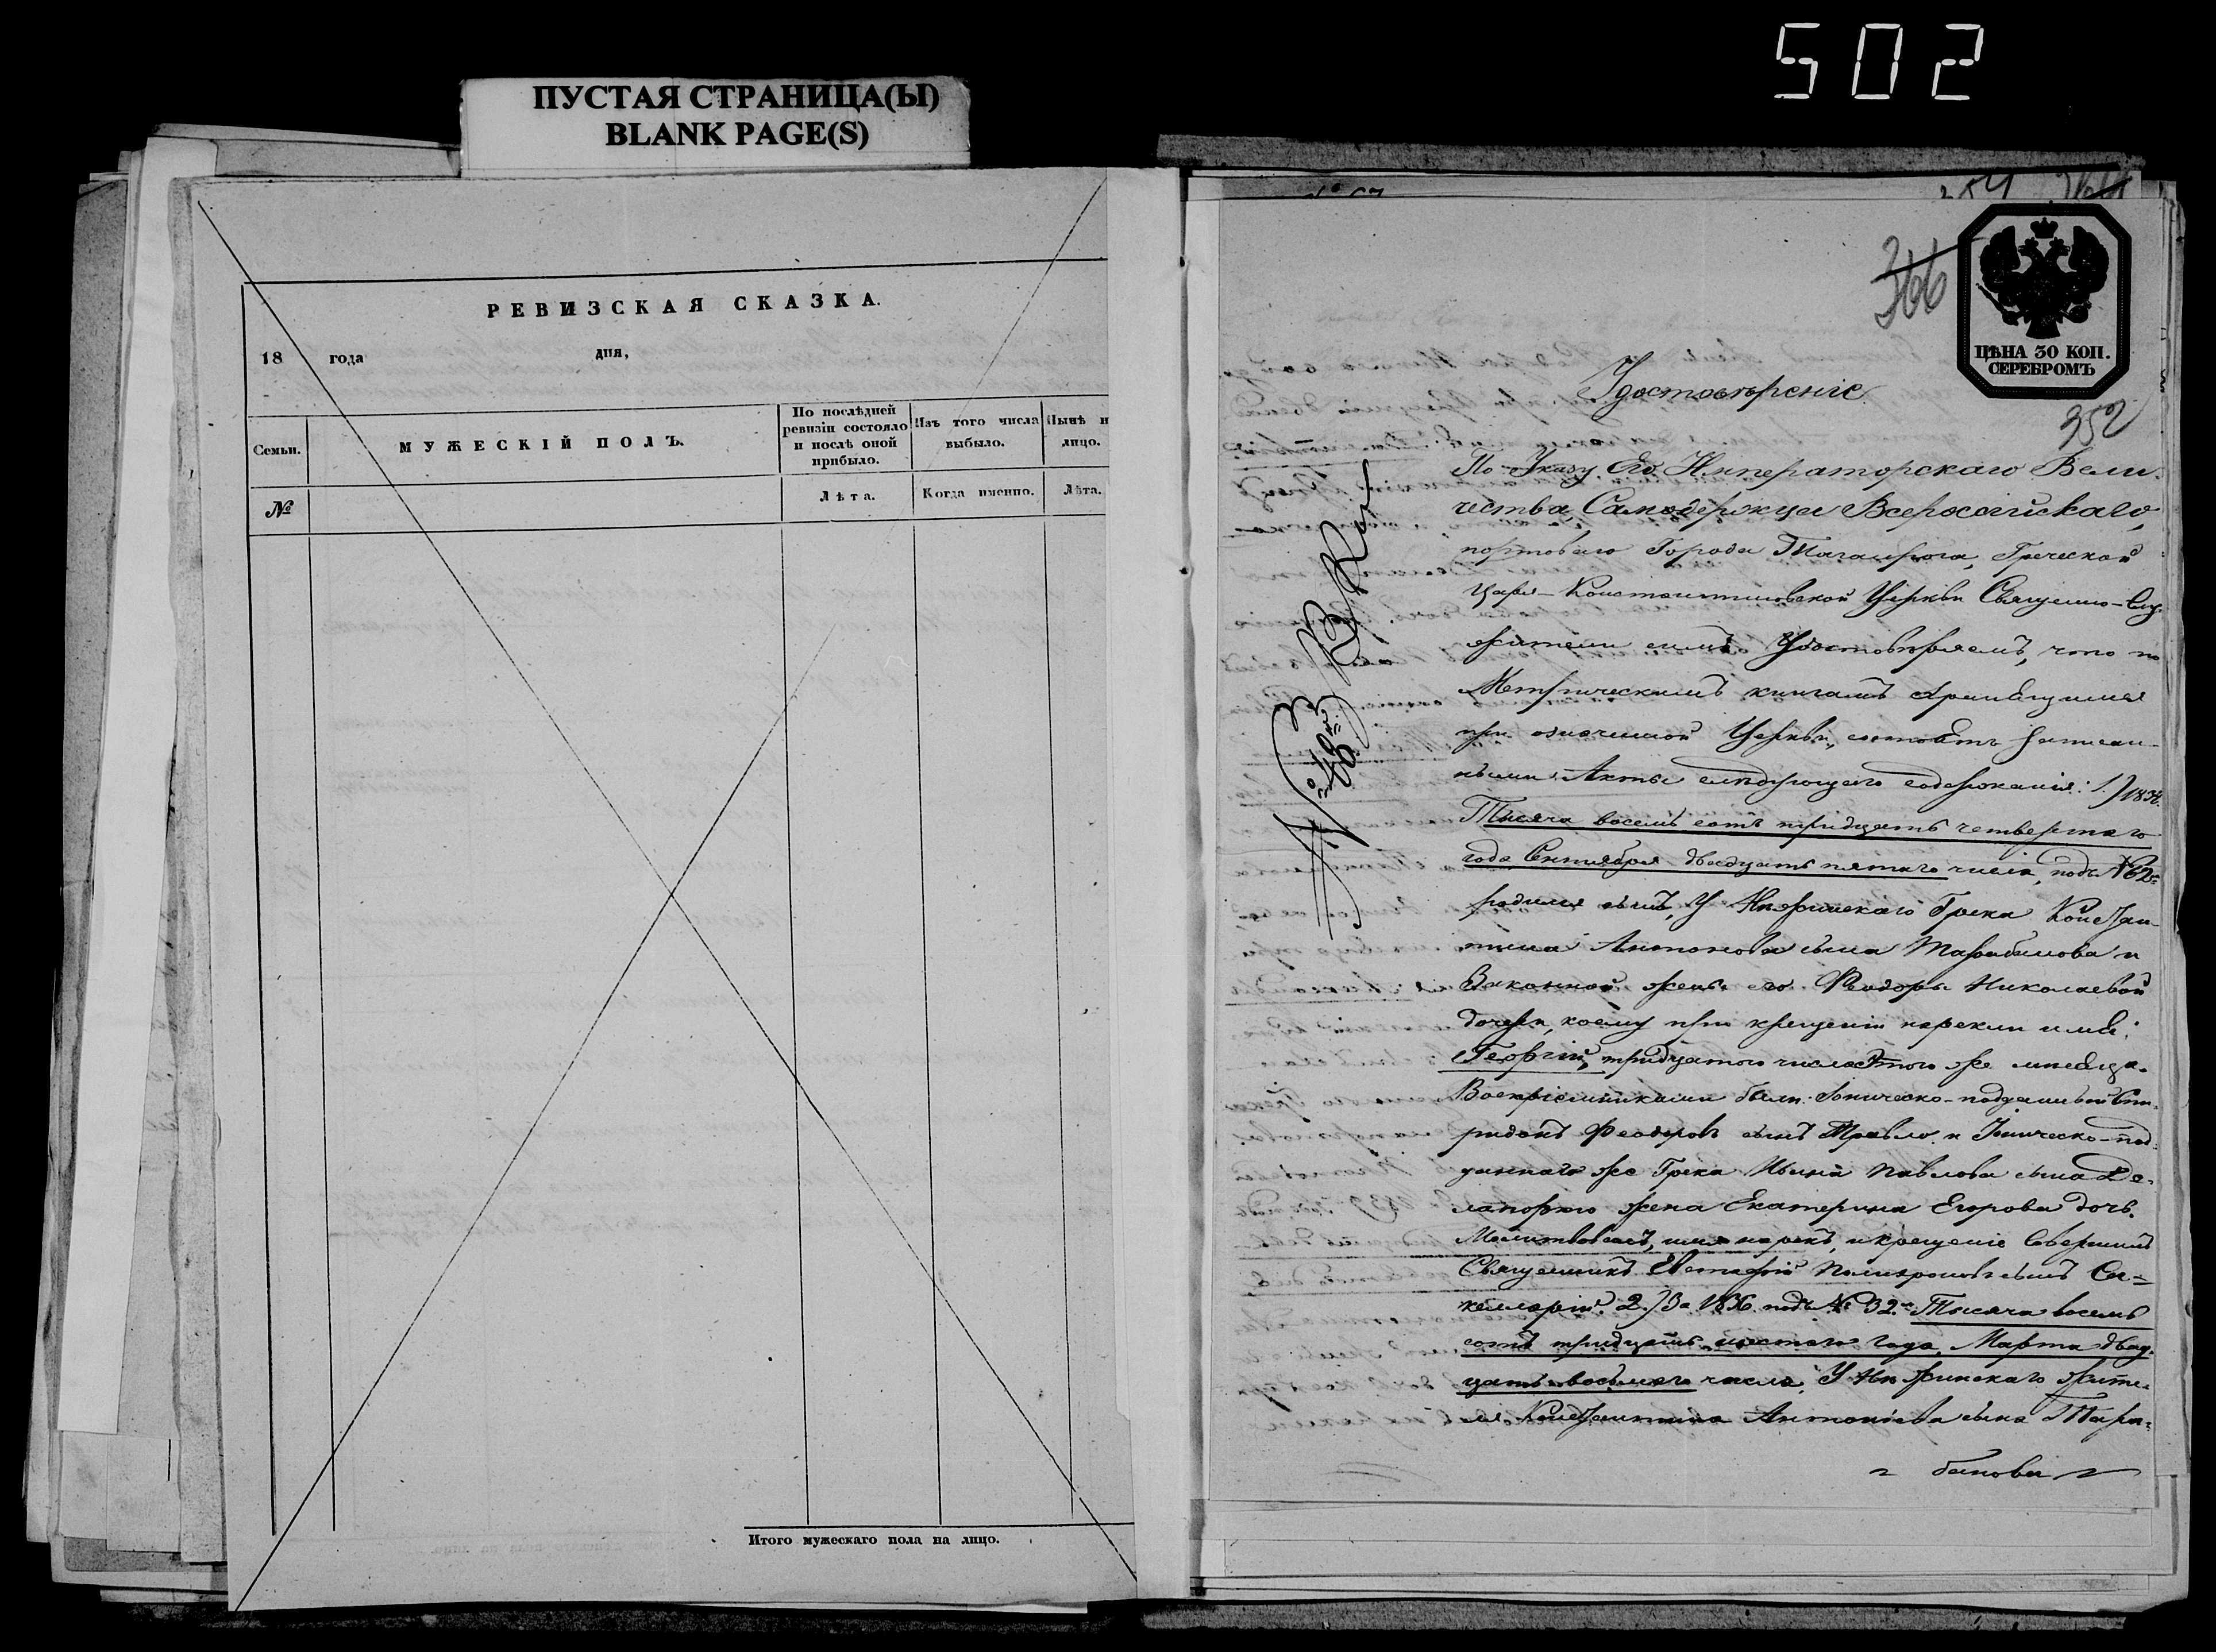 502
ПУСТАЯ СТРАНИЦА(Ы)
BLANK PAGE(S)
РЕВИЗСКАЯ СКАЗКА.
18 года дня,
Семьи.
МУЖЕСКІЙ ПОЛЪ.
По послѣдней ревизіи состояло и послѣ оной прибыло.
Изъ того числа выбыло.
Нынѣ н лицо.
№
Лѣта.
Когда именно.
Лѣта.
Итого мужескаго пола на лицо.
366
ЦѢНА 30 КОП.
СЕРЕБРОМЪ
352
Удостовѣреніе
По Указу Его Императорскаго Вели-
чества Самодержца Всероссійскаго,
портоваго Города Таганрога, Греческой
Царе-Константиновской Церкви Священно-Слу-
жители симъ Удостовѣряемъ, что по
Метрическимъ книгамъ хранящимся
при означенной Церкви, состоятъ записан-
ными Акты слѣдующаго содержанія: 1.) 1834.
Тысяча восемь сотъ тридцать четвертаго
года Сентября двадцать пятаго числа, подъ №62=
родился сынъ, У Нѣжинскаго Грека Констан-
тина Антонова сына Тарабанова и
Законной жены его Феодоры Николаевой
дочери, коему при крещеніи нарекли имя:
Георгій, тридцатого числа этого же мѣсяца.
Воспріемниками были: Іоническо-подданный Спи-
ридонъ Феодоровъ сынъ Травло и Іоническо-под-
даннаго же Грека Ивана Павлова сына Де-
лапорто жена Екатерина Егорова дочь.
Молитвовалъ, имя нарекъ, и крещеніе Совершилъ
Священникъ Евстафій сынъ Са=
келларій. 2.) За 1836. подъ № 32. Тысяча восемь
сотъ тридцать шестого года Марта двад-
цать восьмого числа, У Нѣжинскаго жите-
ля Константина Антоніева сына Тара=
банова